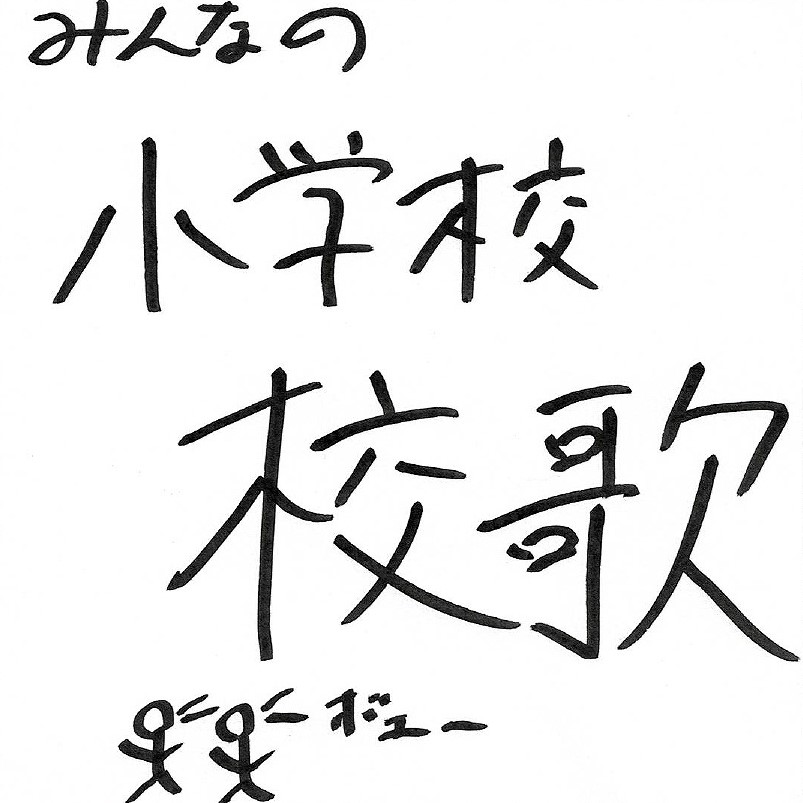 みんなの
小学校
校歌
ボエー